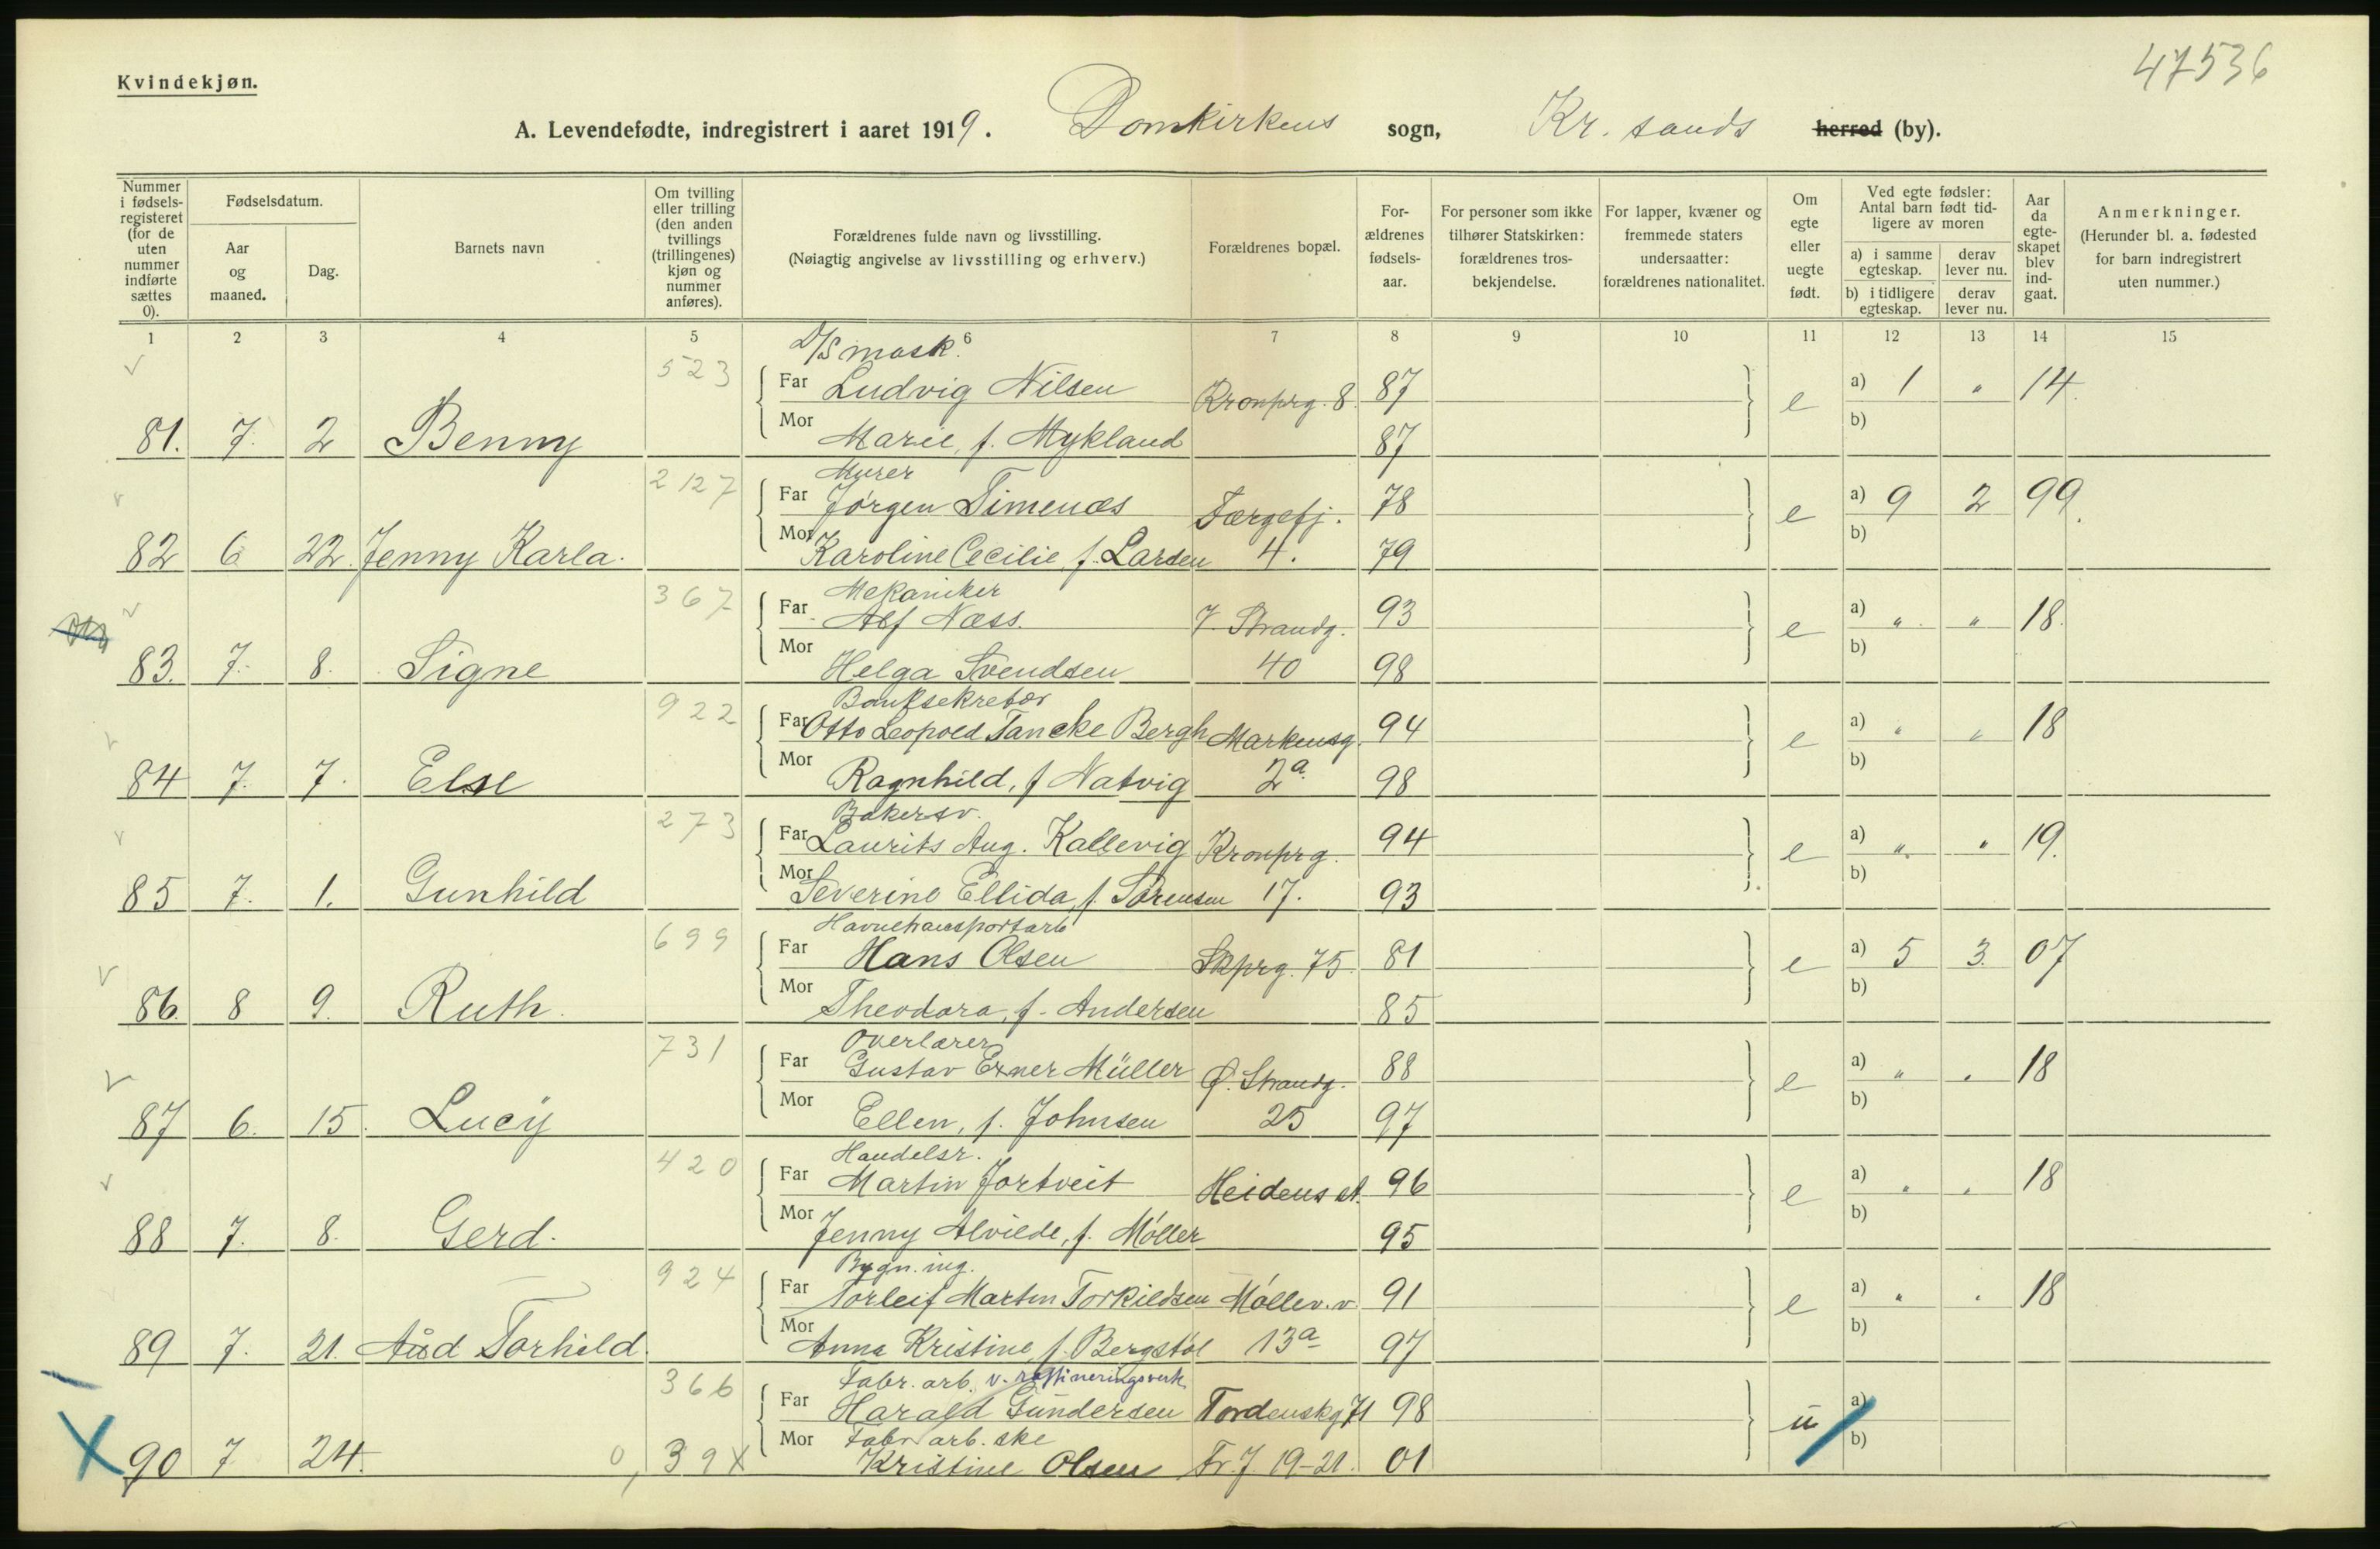 47536
Kvindekjøn.
A. Levendefødte, indregistrert i aaret 1919. Domkirkens sogn, Kr. sands herred (by).
Nummer i fødselsregisteret (for de uten nummer indførte sættes 0).
Fødselsdatum.
Aar og maaned.
Dag.
Barnets navn
Om tvilling eller trilling (den anden tvillings (trillingenes) kjøn og nummer anføres).
Forældrenes fulde navn og livsstilling.
(Nøiagtig angivelse av livsstilling og erhverv.)
Forældrenes bopæl.
Forældrenes fødselsaar.
For personer som ikke tilhører Statskirken: forældrenes trosbekjendelse.
For lapper, kvæner og fremmede staters undersaatter: forældrenes nationalitet.
Om egte eller uegte født.
Ved egte fødsler: Antal barn født tidligere av moren
a) i samme egteskap. derav lever nu.
b) i tidligere egteskap. derav lever nu.
Aar da egteskapet blev indgaat.
Anmerkninger.
(Herunder bl. a. fødested for barn indregistrert uten nummer.)
1 2 3 4 5 6 7 8 9 10 11 12 13 14 15
523 D/S mask.
Far Ludvig Nilsen Kronprg. 8. 87 e a) 1 " 14.
81. 7. 2 Benny Mor Marie, f. Mykland 87 b)
2127 Murer
Far Jørgen Timenæs Færgefj. 78 e a) 9 2 99.
82 6 22. Jenny Karla. Mor Karoline Cecilie f. Larsen 4. 79 b)
367 Mekaniker
Far Alf Næss. V. Strandg. 93 e a) " " 18.
83. 7. 8. Signe Mor Helga Svendsen 40 98 b)
922 Banksekretær
Far Otto Leopold Tancke Bergh Markensg. 94 e a) " " 18
84 7. 7. Else Mor Ragnhild, f Natvig 2a. 98 b)
273 Bakersv.
Far Laurits Aug. Kallevig Kronprg. 94 e a) " " 19.
85 7. 1. Gunhild Mor Severine Ellida, f. Sørensen 17. 93 b)
699 Havnetransportarb
Far Hans Olsen Skprg. 75. 81 e a) 5 3. 07
86. 8 9. Ruth. Mor Theodora, f. Andersen 85 b)
731 Overlærer
Far Gustav Exner Müller Ø. Strandg. 88 e a) " " 18
87 6. 15. Lucy Mor Ellen, f. Johnsen 25 97 b)
420 Handelsr.
Far Martin Jortveit Heidens st. 96 e a) " " 18
88 7. 8. Gerd. Mor Jenny Alvilde, f. Møller 95 b)
924 Bygn. ing.
Far Torleif Marten Torkildsen Møllev. v. 91 e a) " " 18
89 7. 21. Aud Torhild. Mor Anna Kristine, f. Bergstøl 13a 97 b)
366 Fabr. arb. v. raffineringsverk
Far Harald Gundersen Tordenskg 71 98 u a)
X 90 7 24. 0, 39X Mor Fabr arb. ske
Kristine Olsen Fr. J. 19-21. 01 b)